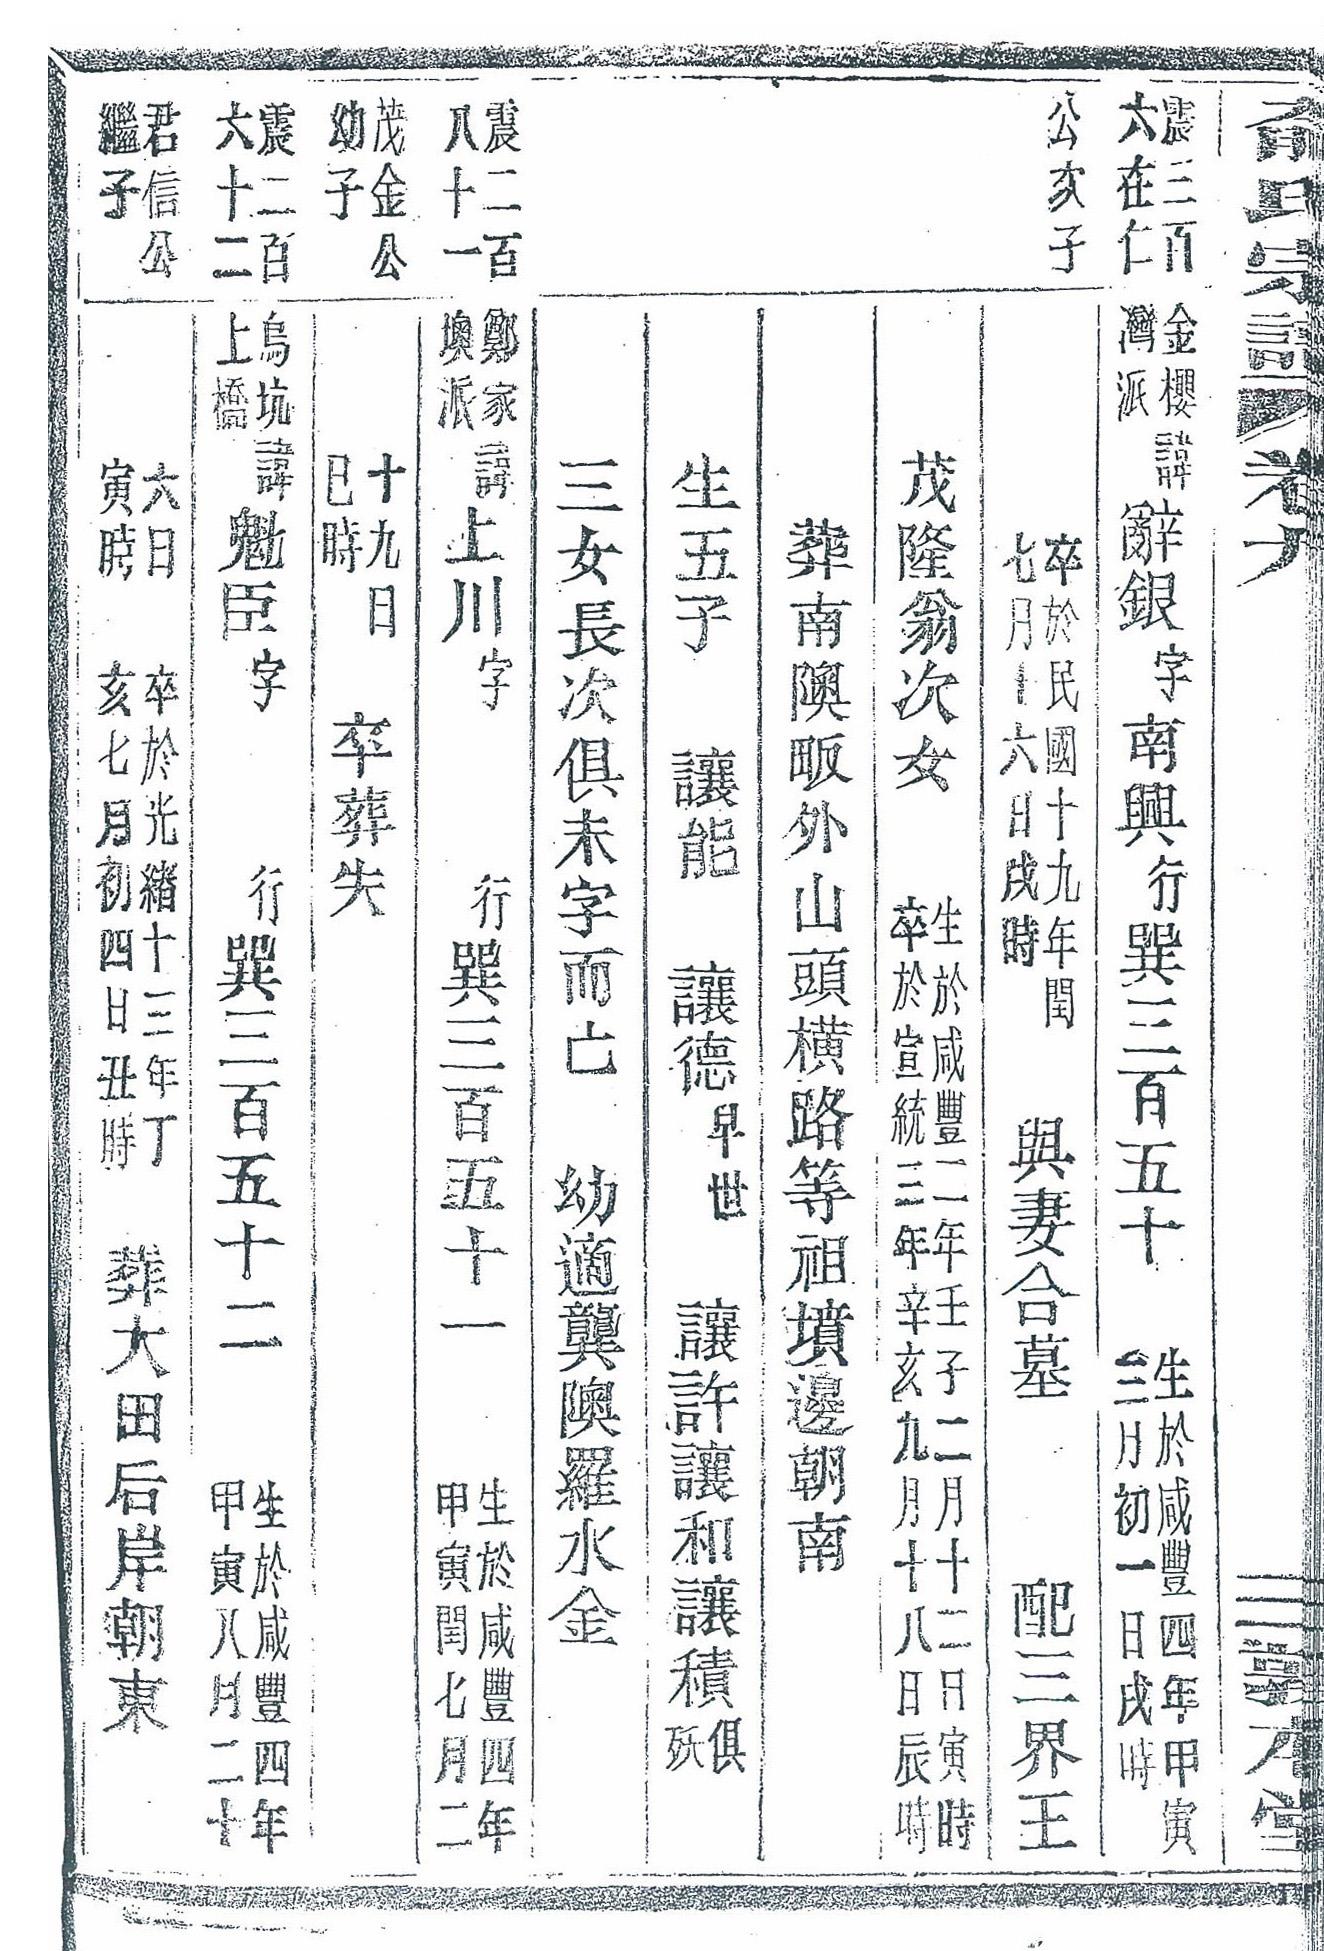 氏宗譜 卷 三 堂
震三百
六在仁
金櫻
灣派
諱辭銀字南興行巽三百五十
生於咸豐四年甲寅
三月初一日戌時
公亥子
卒於民國十九年閏
七月十六日戌時
與妻合墓 配三界王
茂隆翁次女
生於咸豐二年壬子二月十二日寅時
卒於宣統三年辛亥九月十八日辰時
葬南隩畈外山頭橫路等祖墳邊朝南
生五子 讓能 讓德早世 讓許讓和讓積俱殀
三女長次俱未字而亡 幼適龔隩羅水金
震二百
八十一
鄭家
墺派
諱上川字 行巽三百五十一
生於咸豐四年
甲寅閏七月二
茂金公
幼子
十九日
巳時
卒葬失
震二百
六十二
烏坑
上橋
諱魁臣字 行巽三百五十二
生於咸豐四年
甲寅八月二十
君信公
繼子
六日
寅時
卒於光緒十三年丁
亥七月初四日丑時
葬大田后岸朝東